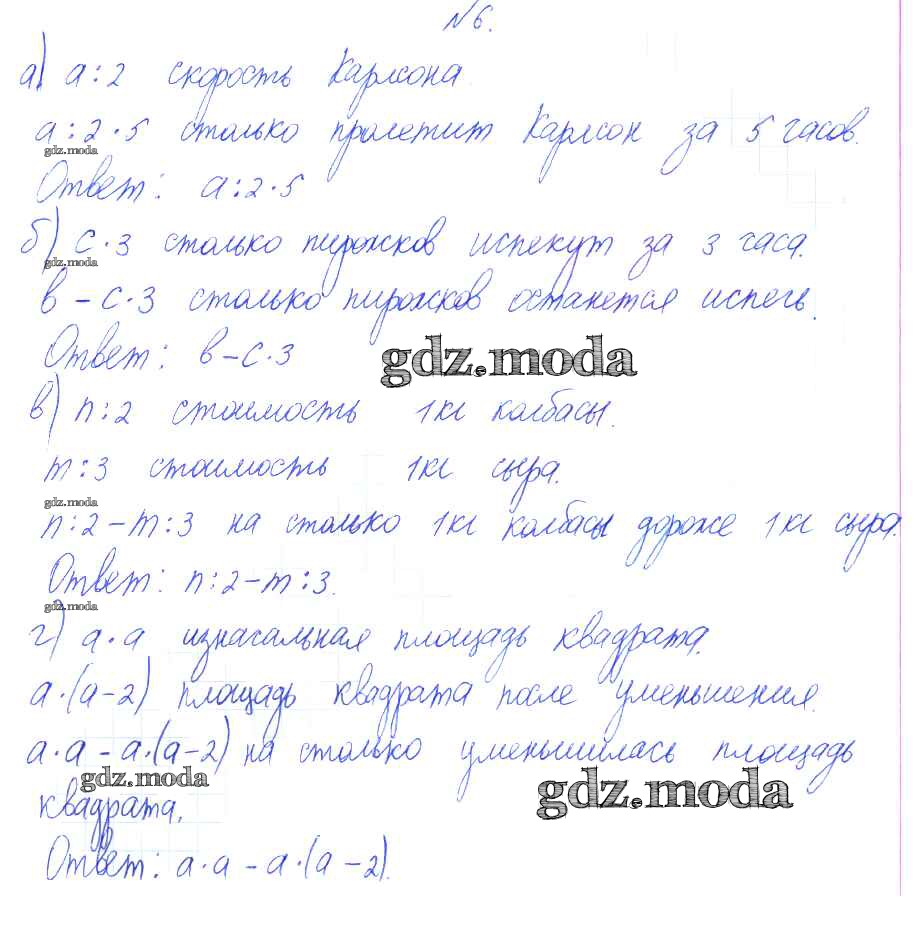 №6.
а) a:2 скорость Карлсона.
a:2·5 столько пролетит Карлсон за 5 часов.
gdz.moda
Ответ: a:2·5
б) c·3 столько пирожков испекут за 3 часа.
gdz.moda
в-c·3 столько пирожков останется испечь.
Ответ: в-c·3
gdz.moda
в) n:2 стоимость 1кг колбасы.
m:3 стоимость 1кг сыра.
gdz.moda
n:2-m:3 на столько 1кг колбасы дороже 1кг сыра.
Ответ: n:2-m:3.
gdz.moda
г) a·a изначальная площадь квадрата.
a·(a-2) площадь квадрата после уменьшения.
a·a-a·(a-2) на столько уменьшилась площадь
gdz.moda
gdz.moda
квадрата.
Ответ: a·a-a·(a-2).